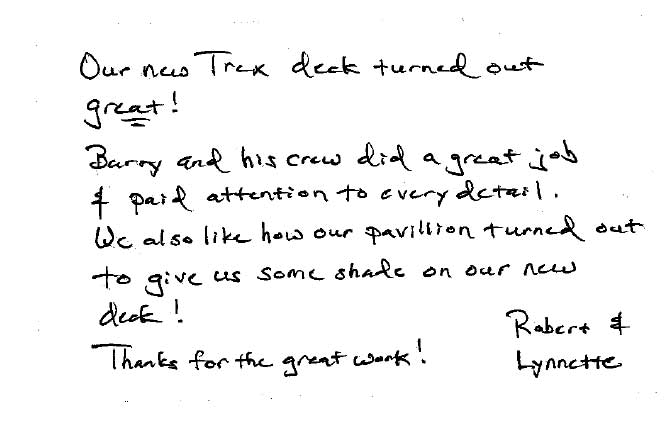 Our new Trex deck turned out
great!
Barry and his crew did a great job
& paid attention to every detail.
We also like how our pavillion turned out
to give us some shade on our new
deck!
Thanks for the great work!
Robert &
Lynnette